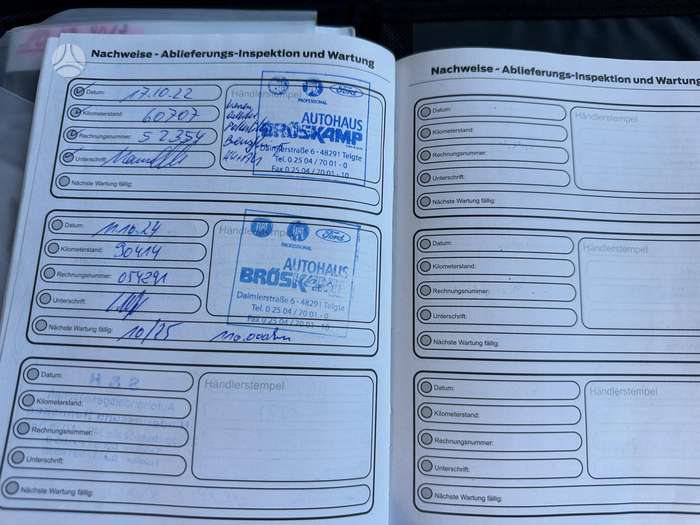 Nachweise - Ablieferungs-Inspektion und Wartung
Datum: 17.10.22
Kilometerstand: 60707
Rechnungsnummer: 52354
Unterschrift:
Nächste Wartung fällig:
Händlerstempel
PROFESSIONAL
Ford
AUTOHAUS
BRÖSKAMP
Daimlerstraße 6 - 48291 Telgte
Tel. 0 25 04 / 70 01 - 0
Fax 0 25 04 / 70 01 - 10
Datum: 11.10.24
Kilometerstand: 90414
Rechnungsnummer: 054291
Unterschrift:
Nächste Wartung fällig: 10/25 110.000km
Händlerstempel
FIAT
PROFESSIONAL
Ford
AUTOHAUS
BRÖSKAMP
Daimlerstraße 6 - 48291 Telgte
Tel. 0 25 04 / 70 01 - 0
Fax 0 25 04 / 70 01 - 10
Datum:
Kilometerstand:
Rechnungsnummer:
Unterschrift:
Nächste Wartung fällig:
Händlerstempel
Nachweise - Ablieferungs-Inspektion und Wartung
Datum:
Kilometerstand:
Rechnungsnummer:
Unterschrift:
Nächste Wartung fällig:
Händlerstempel
Datum:
Kilometerstand:
Rechnungsnummer:
Unterschrift:
Nächste Wartung fällig:
Händlerstempel
Datum:
Kilometerstand:
Rechnungsnummer:
Unterschrift:
Nächste Wartung fällig:
Händlerstempel